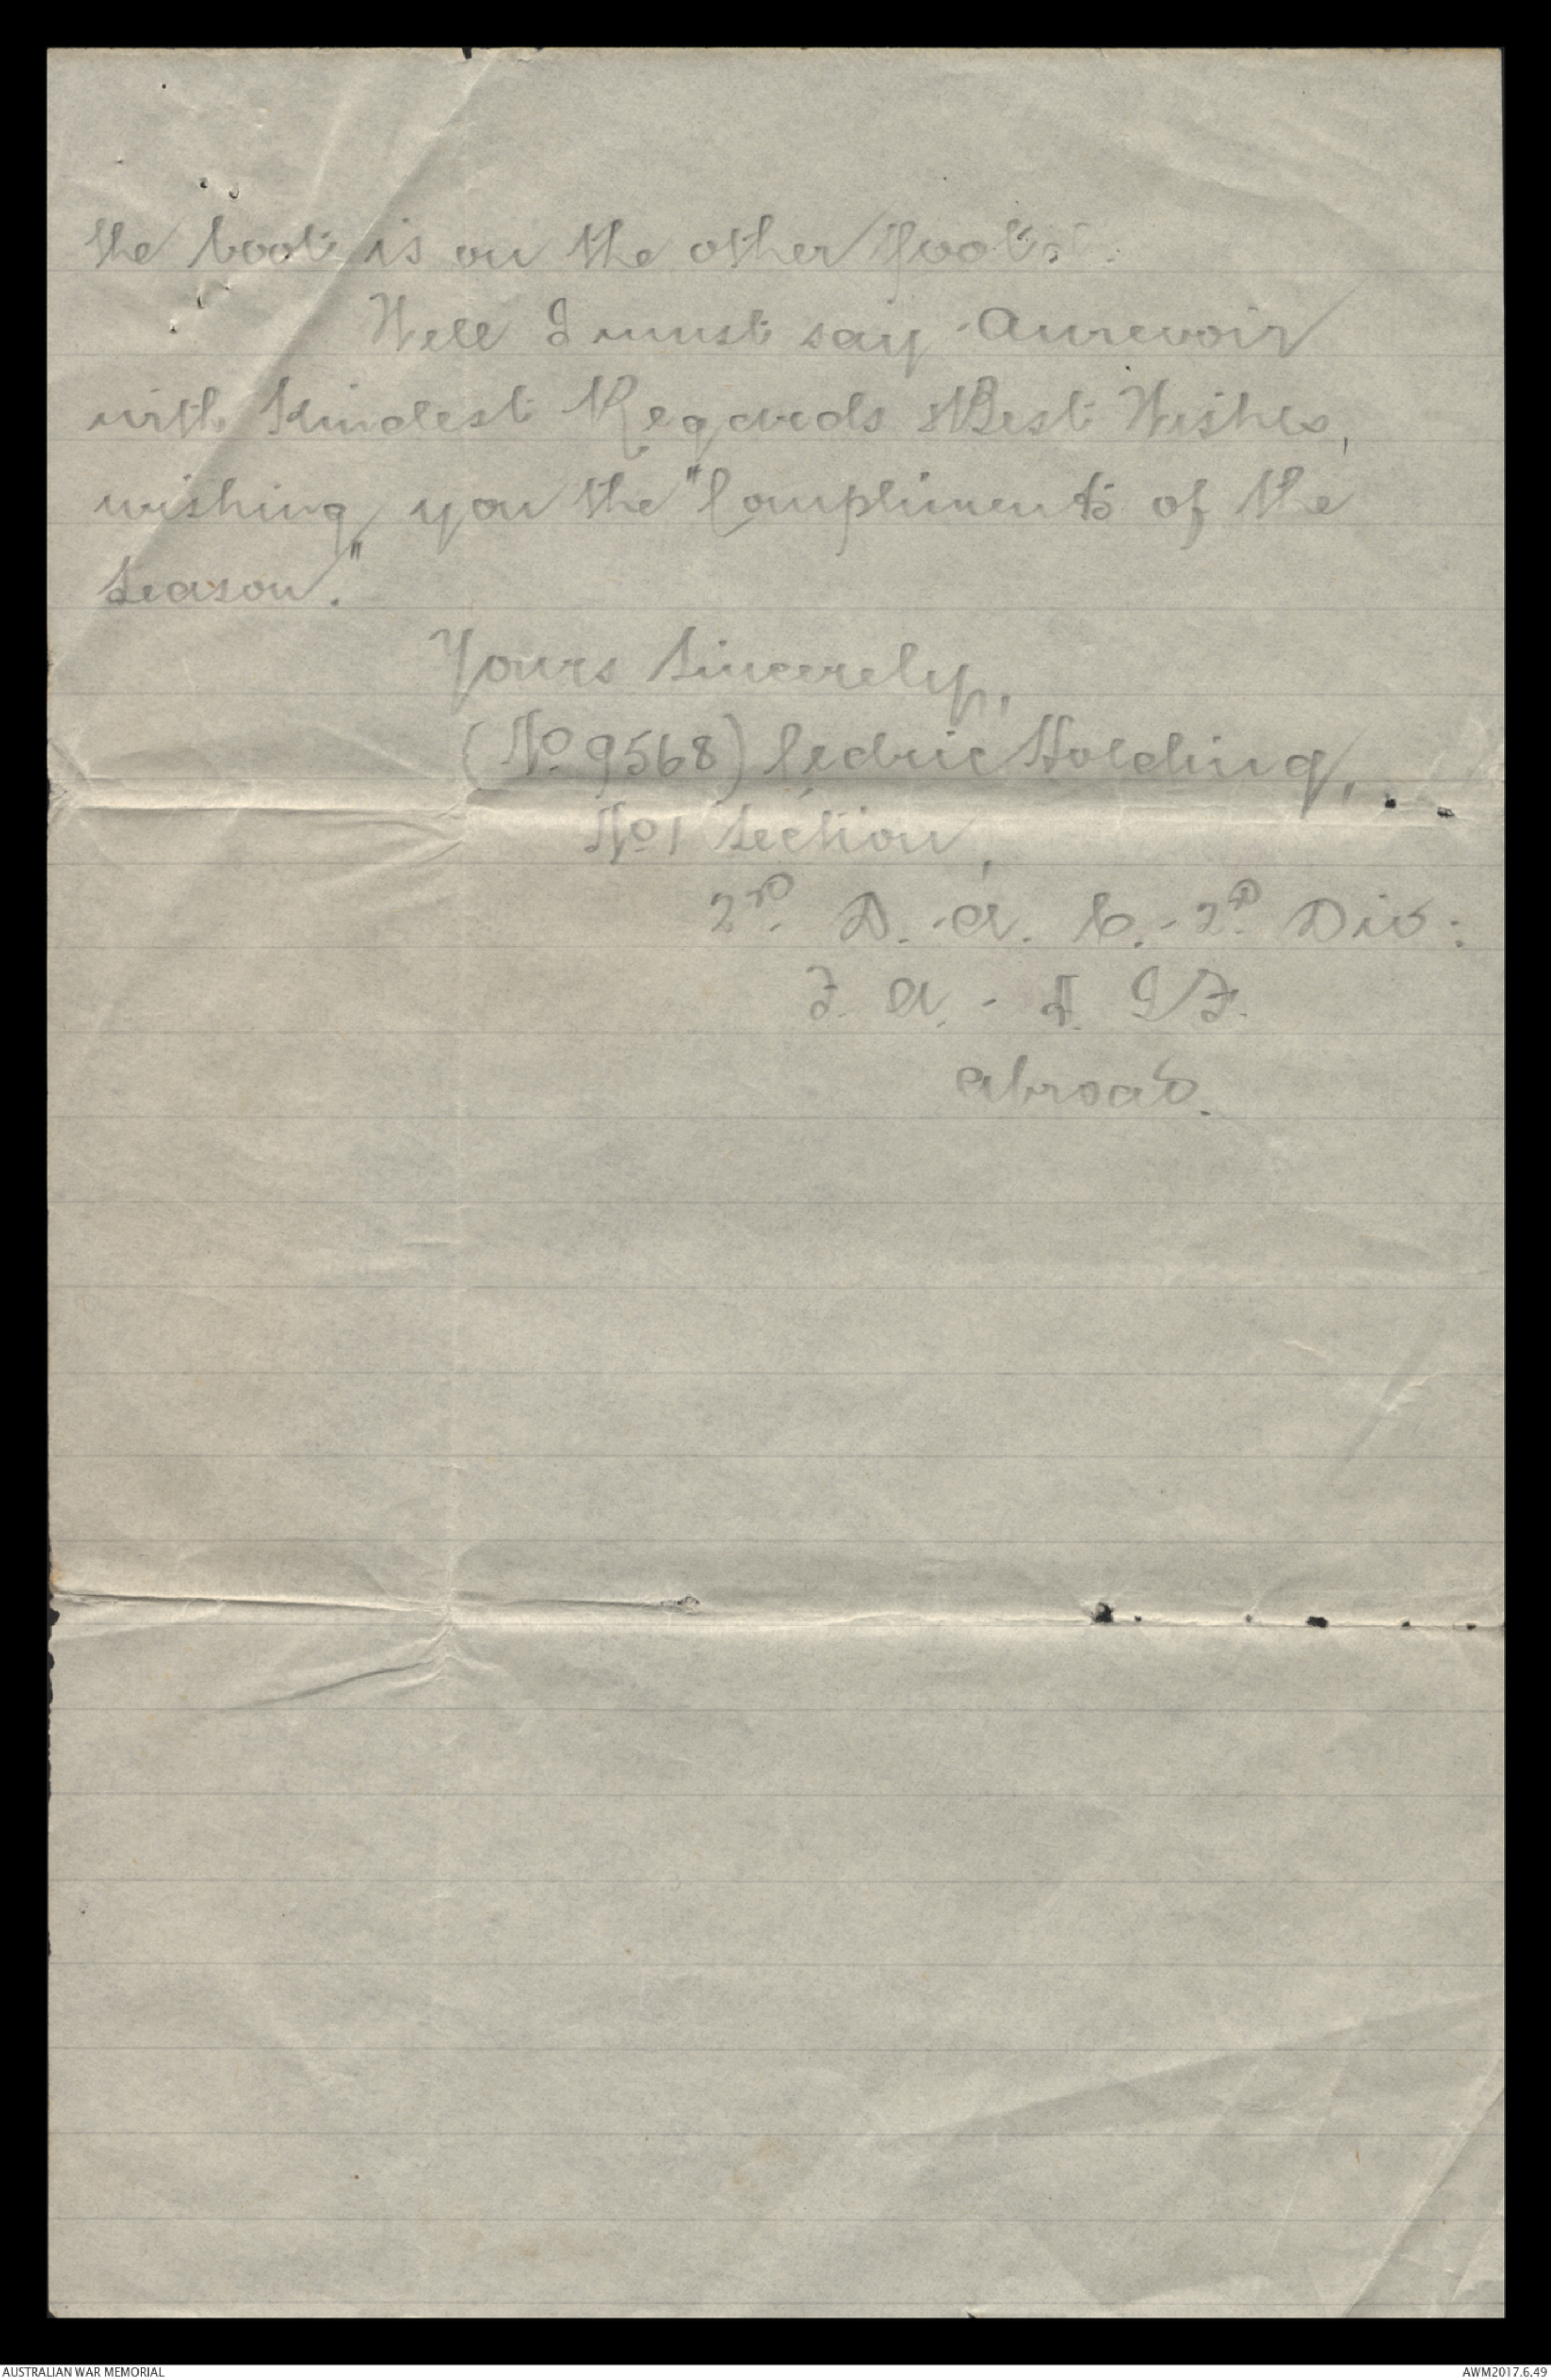 the boot is on the other foot.
Well I must say Aurevoir
with Kindest Regards & Best Wishes,
wishing you the "Compliments of the
Season."
Yours Sincerely,
(No 9568) Cedric Holding,
No 1 Section,
2nd. D. A. C. - 2D. Div:
F. A. - A. I F.
abroad.
AUSTRALIAN WAR MEMORIAL
AWM2017.6.49